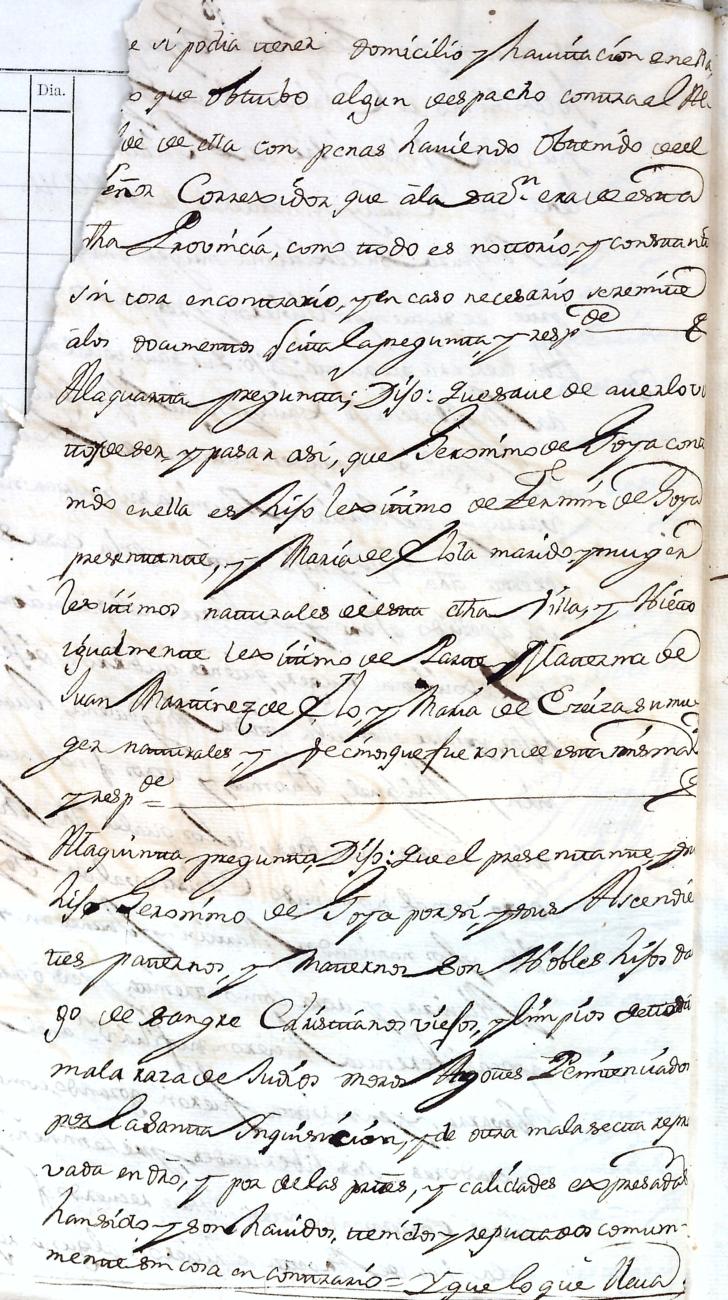 Dia.
e si podia ttener domicilio y havittación en ella,
o que obtubo algun despacho conttra el Al
de de ella con penas haviendo obttenido de el
Señor Correxidor que âla sazn. era de estta
dha Provincia, como ttodo es nottorio, y consttantte
sin cosa en conttrario, y en caso necesario se remitte
âlos documenttos q citta la pregunta, y respde
Ala quartta preguntta, Dijo: que save de averlo vis
tto, de ser, y pasar asi, que Geronimo de Goya conte
nido en ella es hijo lexittimo de Fermin de Goya
presenttante, y Maria de Elola marido, y muger
lexittimos natturales de estta dha Villa, y Nietto
igualmente lexittimo de Partte Matterna de
Juan Martinez de Elo, y Maria de Ezeiza su mu-
ger natturales, y vecinos que fueron de estta misma
y respde =
Ala quintta preguntta, Dijo: que el presentante, su
hijo Geronimo de Goya por si, y sus Ascendien
tes patternos, y matternos son Nobles hijos dal
go de sangre Cristtianos viejos, y limpios de ttoda
mala raza de Judios moros Agotes Penittenciados
por la Santta Inquisición, y de otra mala sectta repro
vada en dro, y por de las parttes, y calidades expresadas
han sido, y son havidos, ttenidos y reputtados comun-
mente sin cosa en conttrario = Y que lo que lleva